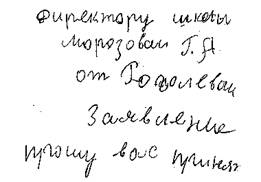 директору школы
Морозовой Г.А
от
Заявление
прошу вас принять